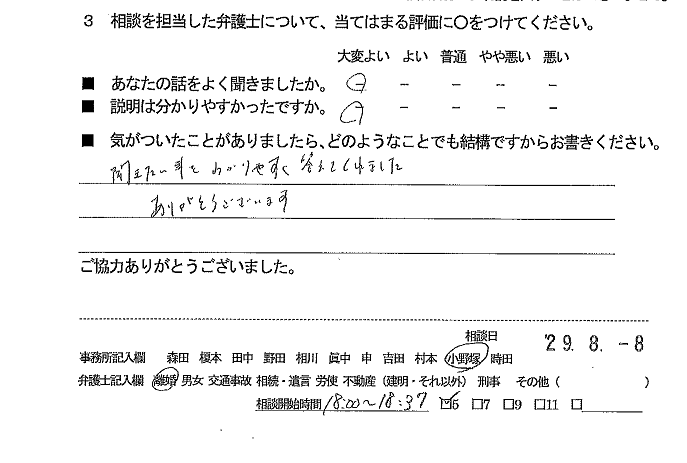 3 相談を担当した弁護士について、当てはまる評価に○をつけてください。
大変よい よい 普通 やや悪い 悪い
■ あなたの話をよく聞きましたか。 － － － － －
■ 説明は分かりやすかったですか。 － － － － －
■ 気がついたことがありましたら、どのようなことでも結構ですからお書きください。
聞きたい事をわかりやすく答えてくれました
ありがとうございます
ご協力ありがとうございました。
相談日 '29. 8. -8
事務所記入欄 森田 榎本 田中 野田 相川 眞中 申 吉田 村本 小野塚 時田
弁護士記入欄 離婚 男女 交通事故 相続・遺言 労使 不動産（建明・それ以外） 刑事 その他（ ）
相談開始時間 18:00〜18:37 ☑5 □7 □9 □11 □